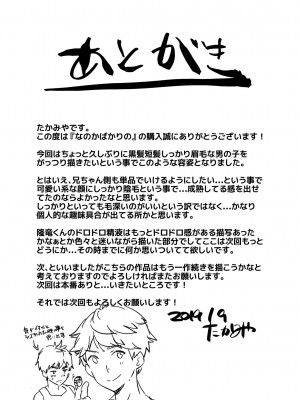 あとがき
たかみやです。
この度は『なのかばかりの』の購入誠にありがとうございます！
今回はちょっと久しぶりに黒髪短髪しっかり眉毛な男の子を
がっつり描きたいという事でこのような容姿となりました。
とはいえ、兄ちゃん側も単品でいけるようにしたい…という事で
可愛い系な顔にしっかり陰毛という事で…成熟してる感を出せ
てたのならよかったなと思います。
しっかりといっても毛深いのがいいという訳ではなく…かなり
個人的な趣味具合が出てる所かと思います。
隆竜くんのドロドロ精液はもっとドロドロ感がある描写あった
かなぁとか色々と迷いながら描いた部分でしてここは次回もっと
どうにか…その時までに何か思いついて欲しいです。
次、といいましたがこちらの作品はもう一作続きを描こうかなと
考えておりますのでよろしければまたお願いします。
次回は本番ありと…いきたいところです！
それでは次回もよろしくお願いします！
2019.1.9
たかみや